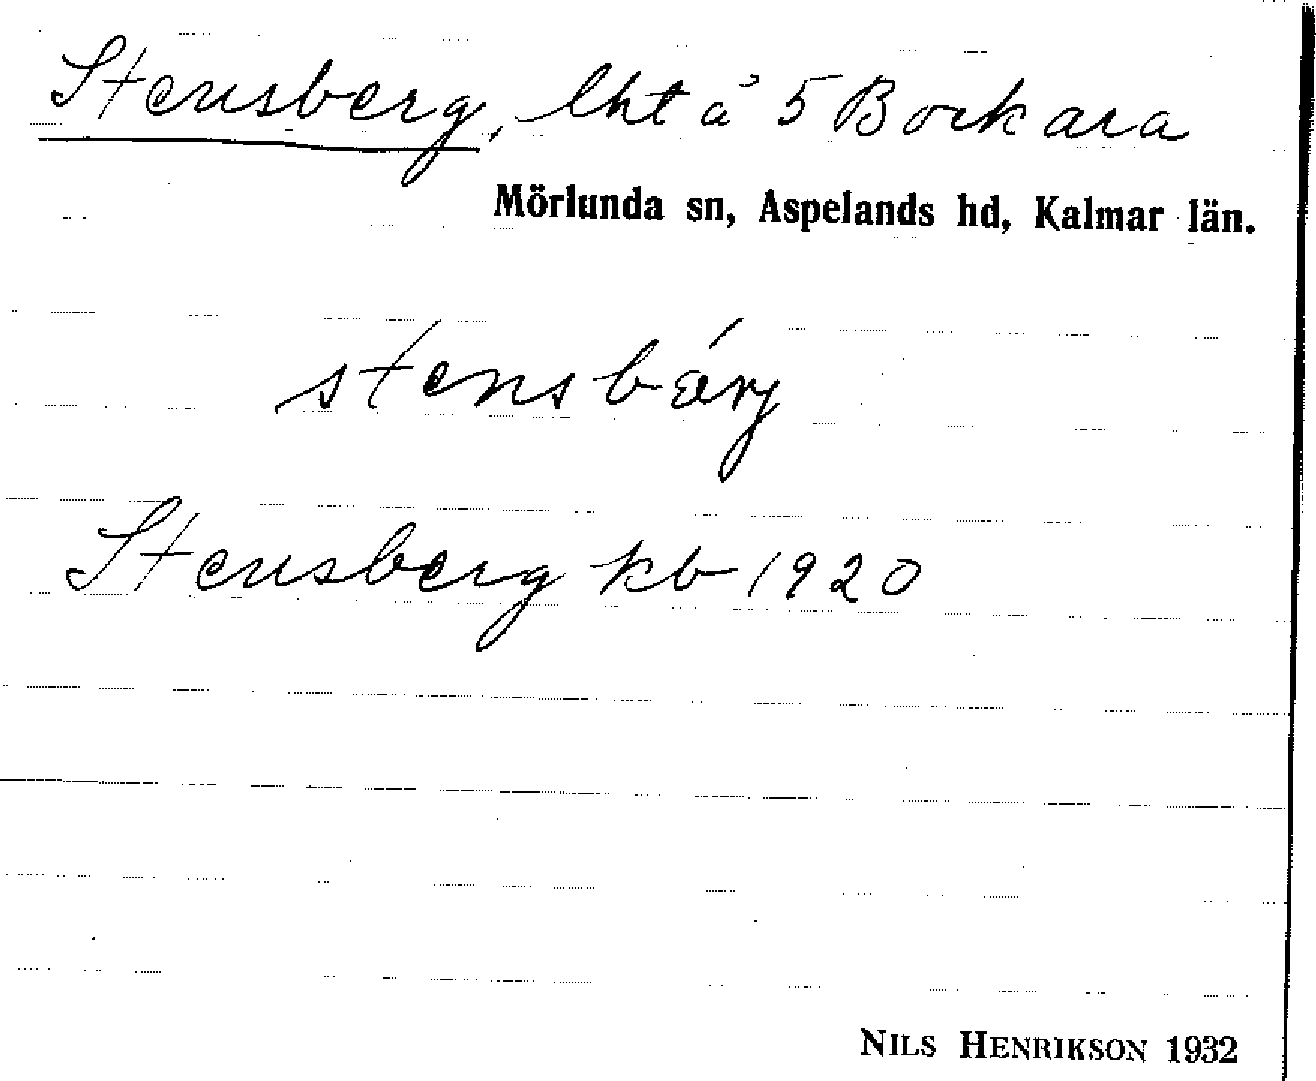 Stensberg, lht å 5 Bockara
Mörlunda sn, Aspelands hd, Kalmar län.
stensbärj
Stensberg kb 1920
NILS HENRIKSON 1932